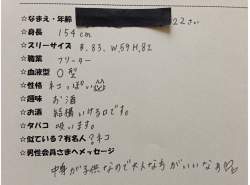 ☆なまえ・年齢 22さい
☆身長 154cm
☆スリーサイズ B.83、W.59 H.82
☆職業 フリーター
☆血液型 O型
☆性格 ネコっぽい
☆趣味 お酒
☆お酒 結構いける口です。
☆タバコ 吸います。
☆似ている?有名人?ネコ
☆男性会員さまへメッセージ
中身が子供なので大人な方がいいなぁ♡